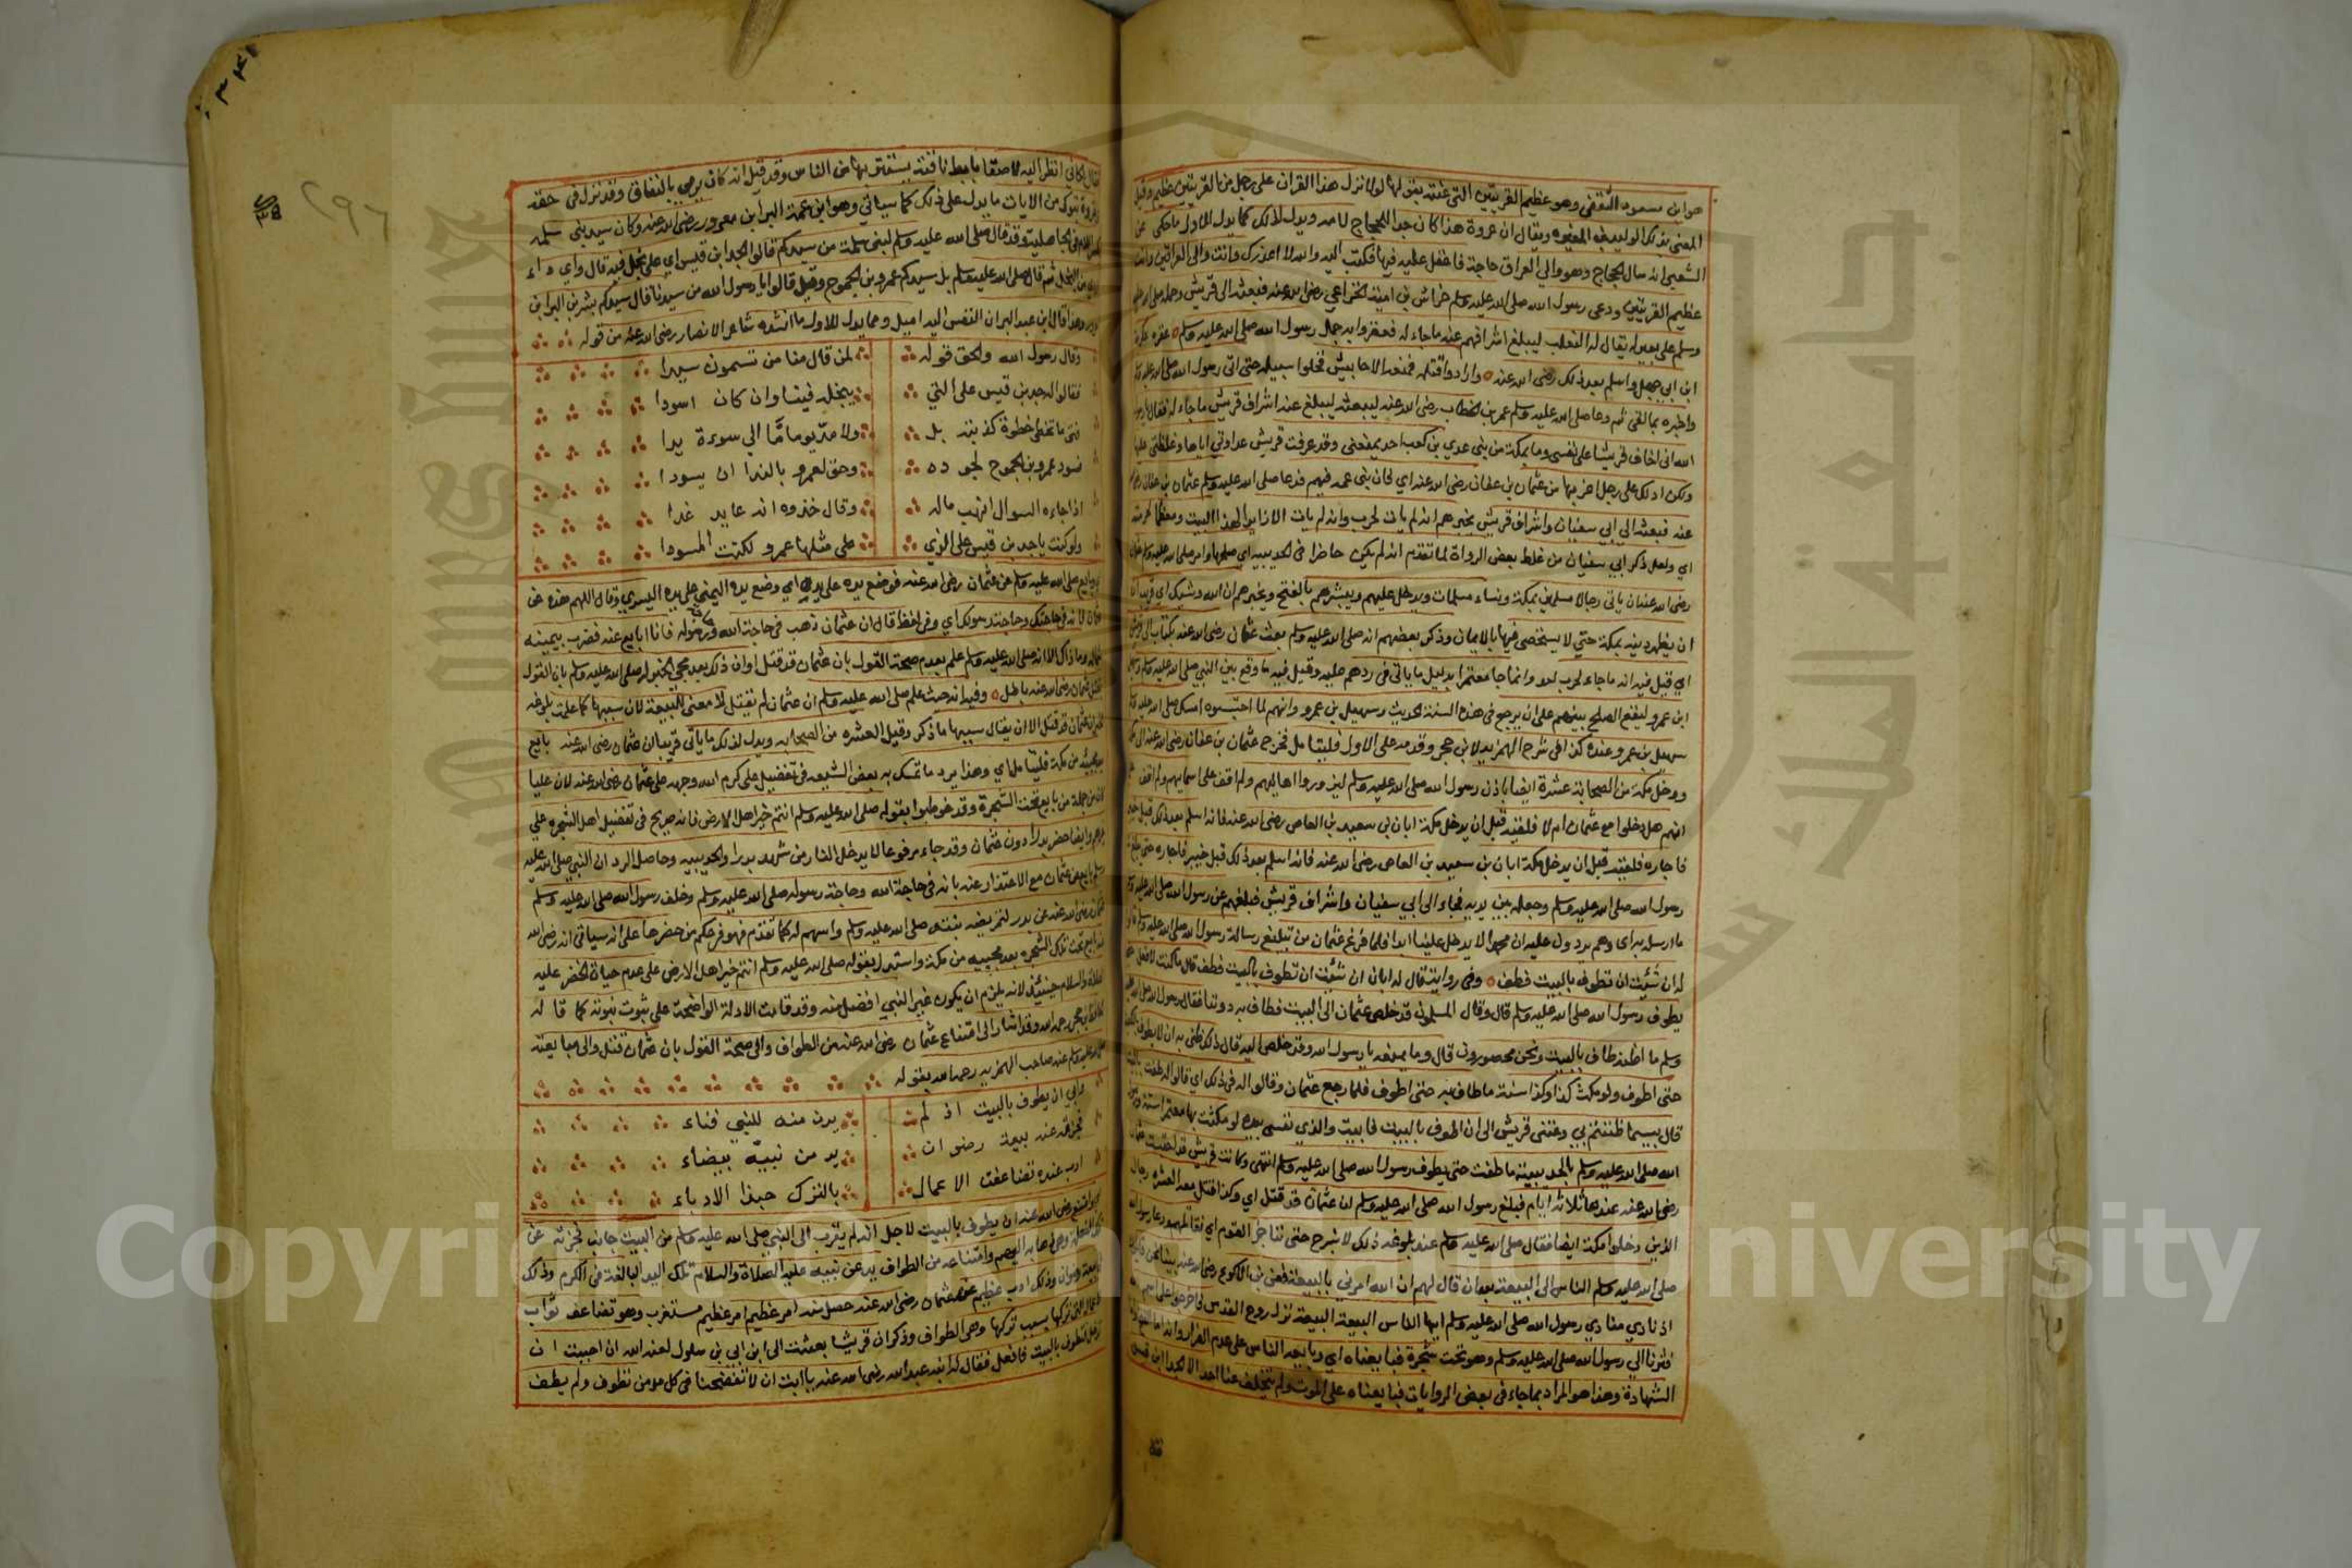 هو ابن مسعود الثقفي وهو عظيم القريتين التي عنته بقولها لولا نزل هذا القران على رجل من القريتين عظيم وقيل
المعني بذلك الوليد بن المغيره ويقال ان عروة هذا كان جد الحجاج لامه ويدل لذلك كما يدل للاول ماحكى عن
الشعبي انه سال الحجاج وهو والي العراق حاجة فاعتل عليه فيها فكتب اليه والله لا اعذرك وانت والى العراقين وابن
عظيم القريتين ودعى رسول الله صلى الله عليه وسلم خراش بن امية الخزاعي رضى الله عنه فبعثه الى قريش وحمله صلى الله عليه
وسلم على بعير له يقال له الثعلب ليبلغ اشرافهم عنه ماجاء له فعقروا به جمل رسول الله صلى الله عليه وسلم عقره عكرمة
ابن ابي جهل واسلم بعد ذلك رضى الله عنه وارادوا قتله فمنعه الاحابيش فخلوا سبيله حتى اتى رسول الله صلى الله عليه وسلم
واخبره بما لقى ثم دعا صلى الله عليه وسلم عمر بن الخطاب رضى الله عنه ليبعثه ليبلغ عنه اشراف قريش ماجاء له فقال يارسول
الله انى اخاف قريشا على نفسى وما بمكة من بنى عدي بن كعب احد يمنعنى وقد عرفت قريش عداوتي اياها وغلظتى عليها
ولكن ادلك على رجل اعز بها من عثمان بن عفان رضى الله عنه اي لان بنى عمه فيهم فدعا صلى الله عليه وسلم عثمان بن عفان رضى الله
عنه فبعثه الى ابي سفيان واشراف قريش يخبرهم انه لم يات لحرب وانه لم يات الا زايرا لهذا البيت ومعظما لحرمته
اي ولعل ذكر ابي سفيان من غلط بعض الرواة لما تقدم انه لم يكن حاضرا فى الحديبيه اي صلحها وامر صلى الله عليه وسلم عثمان
رضى الله عنه ان ياتى رجالا مسلمين بمكة ونساء مسلمات ويدخل عليهم ويبشرهم بالفتح ويخبرهم ان الله وشيك اي قريب ان
ان يظهر دينه بمكة حتى لا يستخفى فيها بالايمان وذكر بعضهم انه صلى الله عليه وسلم بعث عثمان رضى الله عنه بكتاب الى قريش
اي قيل فيه انه ماجاء لحرب احد وانما جا معتمرا بدليل ما ياتى فى ردهم عليه وقيل فيه ما وقع بين النبي صلى الله عليه وسلم وسهيل
ابن عمرو ليقع الصلح بينهم على ان يرجع فى هذه السنة الحديث وسهيل بن عمرو وانهم لما احتبسوه امسك صلى الله عليه وسلم
سهيل بن عمرو عنده كذا فى شرح الهمزيه لابن حجر وقدمه على الاول فليتامل فخرج عثمان بن عفان رضى الله عنه الى مكة
ودخل مكة من الصحابة عشرة ايضا باذن رسول الله صلى الله عليه وسلم ليزوروا اهاليهم ولم اقف على اسمايهم ولم اقف على
انهم هل دخلوا مع عثمان ام لا فلقيه قبل ان يدخل مكة ابان بن سعيد بن العاص رضى الله عنه فانه اسلم بعد ذلك قبل خيبر
فاجاره فلقيه قبل ان يدخل مكة ابان بن سعيد بن العاص رضى الله عنه فانه اسلم بعد ذلك قبل خيبر فاجاره حتى يبلغ
رسول الله صلى الله عليه وسلم وجعله بين يديه فجاء الى ابي سفيان واشراف قريش فبلغهم عن رسول الله صلى الله عليه وسلم
ما ارسله به اى وهم يردون عليه ان محمدا لا يدخل علينا ابدا فلما فرغ عثمان من تبليغ رسالة رسول الله صلى الله عليه وسلم قالوا
له ان شئت ان تطوف بالبيت فطف وفى رواية قال له ابان ان شئت ان تطوف بالبيت فطف قال ماكنت لافعل حتى
يطوف رسول الله صلى الله عليه وسلم قال وقال المسلمون قد خلص عثمان الى البيت فطاف به دوننا فقال رسول الله صلى الله عليه
وسلم ما اظنه طاف بالبيت ونحن محصورون قال وما يمنعه يا رسول الله وقد خلص اليه قال ذلك ظنى به ان لا يطوف بالكعبة
حتى اطوف ولو مكث كذا وكذا سنة ماطاف به حتى اطوف فلما رجع عثمان وقالوا له فى ذلك اي قالوا له طفت بالبيت
قال بيسما ظننتم بي دعتنى قريش الى ان اطوف بالبيت فابيت والذي نفسى بيده لو مكثت بها معتمرا سنة ورسول
الله صلى الله عليه وسلم بالحديبية ماطفت حتى يطوف رسول الله صلى الله عليه وسلم انتهى وكانت قريش قد احتبست عثمان
رضى الله عنه عندها ثلاثة ايام فبلغ رسول الله صلى الله عليه وسلم ان عثمان قد قتل اي وكذا قتل معه العشرة رجال
الذين دخلوا مكة ايضا فقال صلى الله عليه وسلم عند بلوغه ذلك لا نبرح حتى نناجز القوم اي نقاتلهم ودعا رسول الله
صلى الله عليه وسلم الناس الى البيعة بعد ان قال لهم ان الله امرني بالبيعة فعن بن الاكوع رضى الله عنه بينا نحن قايلون
اذ نادي منادي رسول الله صلى الله عليه وسلم ايها الناس البيعة البيعة نزل روح القدس فاخرجوا على اسم الله
فثرنا الى رسول الله صلى الله عليه وسلم وهو تحت شجرة فبايعناه اي وبايعه الناس على عدم الفرار وانه اما الفتح واما
الشهادة وهذا هو المراد بما جاء فى بعض الروايات فبايعناه على الموت ولم يتخلف عنا احد الا الجد ابن قيس
قال
٢٩٦
لكاني انظر اليه لاصقا بابط ناقته يستتر بها من الناس وقد قيل انه كان يرمى بالنفاق وقد نزل فى حقه
غزوة تبوك من الايات ما يدل على ذلك كما سياتي وهو ابن عمة البرا ابن معرور رضى الله عنه وكان سيد بني سلمه
فى الجاهلية وقد قال صلى الله عليه وسلم لبنى سلمة من سيدكم قالوا الجد ابن قيس اي على بخل فيه قال واي داء
من البخل ثم قال صلى الله عليه وسلم بل سيدكم عمرو بن الجموح وقيل قالوا يا رسول الله من سيدنا قال سيدكم بشر بن البرا بن
وهذا قال ابن عبد البر ان النفس اليه اميل ومما يدل للاول ما انشده شاعر الانصار رضى الله عنه من قوله
وقال رسول الله والحق قوله لمن قال منا من تسمون سيدا
فقالوا له جد بن قيس على التي يبخله فينا وان كان اسودا
فتى ما تخطى خطوة كذ بنه بل ولا مد يوما ما الى سوءة يدا
فسود عمرو بن الجموح لجوده وحق لعمرو بالندا ان يسودا
اذا جاءه السوال انهب ماله وقال خذوه انه عايد غدا
ولو كنت ياجد بن قيس على الذي على مثلها عمرو لكنت المسودا
وبايع صلى الله عليه وسلم عن عثمان رضى الله عنه فوضع يده على يده اي وضع يده اليمني على يده اليسرى وقال اللهم هذه عن
عثمان فانه فى حاجتك وحاجة رسولك اي وفى لفظ قال ان عثمان ذهب فى حاجة الله ورسوله فانا ابايع عنه فضرب بيمينه
شماله وما ذاك الا انه صلى الله عليه وسلم علم بعدم صحة القول بان عثمان قد قتل او ان ذلك بعد مجي الخبر له صلى الله عليه وسلم بان القول
بقتل عثمان رضى الله عنه باطل وفيه انه حيث علم صلى الله عليه وسلم ان عثمان لم يقتل لا معنى للبيعة لان سببها كما علمت بلوغه
ان عثمان قد قتل الا ان يقال سببها ماذكر وقيل العشره من الصحابه ويدل لذلك ما ياتى قريبا ان عثمان رضى الله عنه بايع
بعد مجيئه من مكة فليتامل اي وهذا يرد ما تمسك به بعض الشيعه فى تفضيل على كرم الله وجهه على عثمان رضى الله عنه لان عليا
كان من جملة من بايع تحت الشجرة وقد خوطبوا بقوله صلى الله عليه وسلم انتم خير اهل الارض فانه صريح فى تفضيل اهل الشجره على
غيرهم وايضا حضر بدرا دون عثمان وقد جاء مرفوعا لا يدخل النار من شهد بدرا والحديبيه وحاصل الرد ان النبي صلى الله عليه
وسلم بايع عن عثمان مع الاعتذار عنه بانه فى حاجة الله وحاجة رسوله صلى الله عليه وسلم وخلف رسول الله صلى الله عليه وسلم
عثمان رضى الله عنه عن بدر لتمريضه بنته صلى الله عليه وسلم واسهم له كما تقدم فهو فى حكم من حضرها على انه سياتى انه رضى الله
عنه بايع تحت تلك الشجره بعد مجييه من مكة واستدل بقوله صلى الله عليه وسلم انتم خير اهل الارض على عدم حياة الخضر عليه
الصلاة والسلام حينئذ لانه يلزم ان يكون غير النبي افضل منه وقد قامت الادلة الواضحة على ثبوت نبوته كما قاله
الحافظ ابن حجر رحمه الله وقد اشار الى امتناع عثمان رضى الله عنه من الطواف والى صحة القول بان عثمان قتل والى مبايعته
صلى الله عليه وسلم عنه صاحب الهمزيه رحمه الله بقوله
وابي ان يطوف بالبيت اذ لم يدن منه للنبي فناء
فجزته عنه ببيعة رضوان يد من نبيه بيضاء
ادب عنده تضاعفت الاعمال بالترك حبذا الادباء
اي وامتنع رضى الله عنه ان يطوف بالبيت لاجل انه لم يقرب الى النبي صلى الله عليه وسلم من البيت جانب فجزته عن
تلك الفعله وهى ذهابه اليهم وامتناعه من الطواف يد عن نبيه عليه الصلاة والسلام تلك اليد البالغة فى الكرم وذلك
بيعة رضوان وذلك ادب عظيم عند عثمان رضى الله عنه حصل منه امر عظيم امر عظيم مستغرب وهو تضاعف ثواب
الاعمال التى تركها بسبب تركها وهى الطواف وذكر ان قريشا بعثت الى ابن ابي بن سلول لعنه الله ان احببت ان
تدخل فتطوف بالبيت فافعل فقال له ابنه عبد الله رضى الله عنه ياابت ان لا تفضحنا فى كل موطن تطوف ولم يطف
Copyright © King Saud University
جامعة الملك سعود